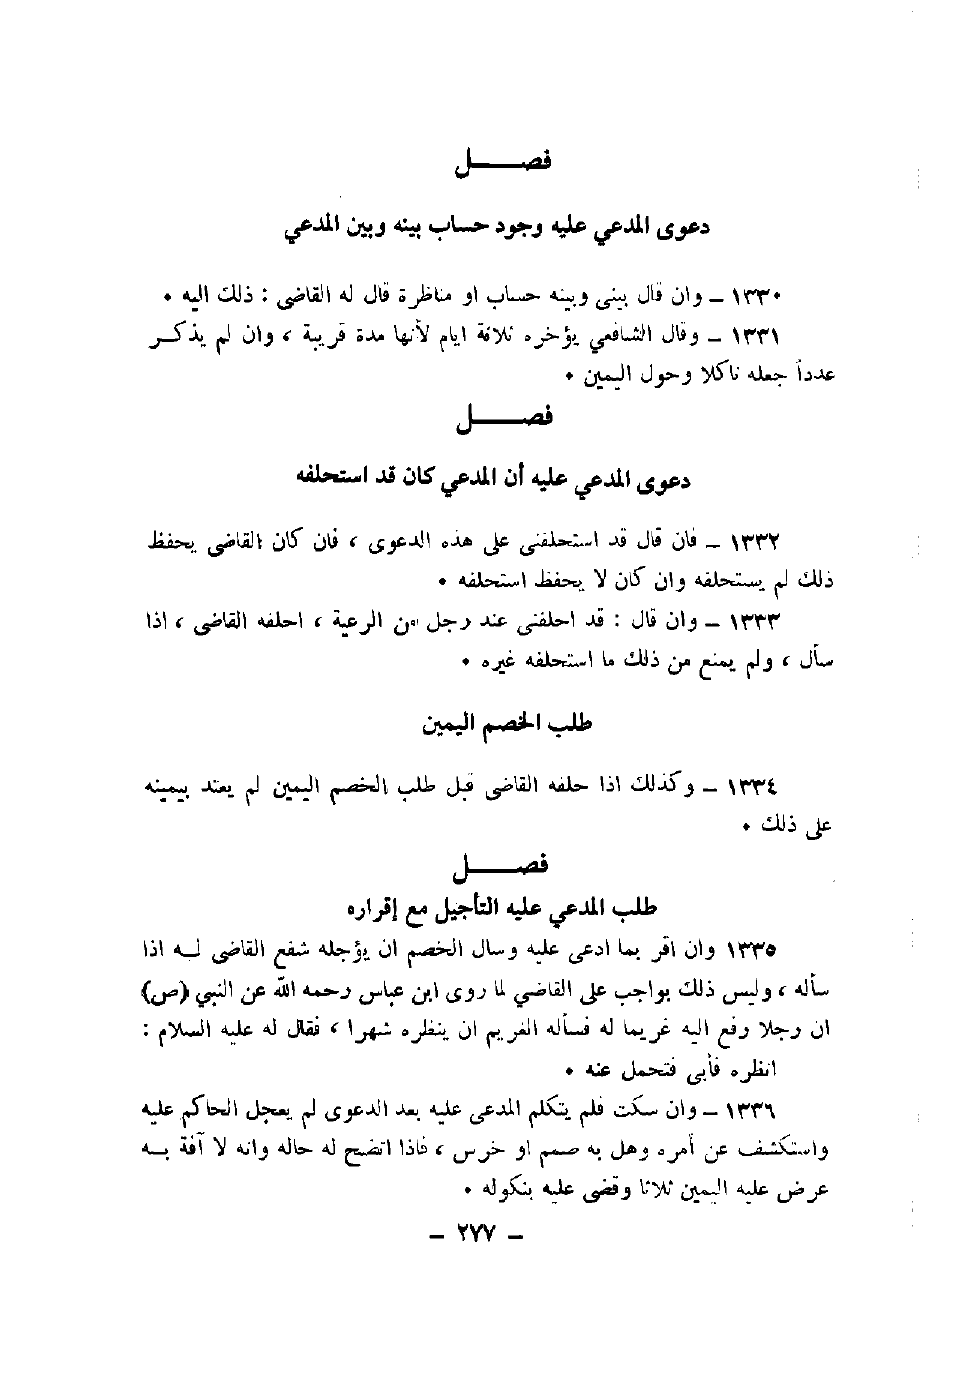 فصـــــل
دعوى المدعي عليه وجود حساب بينه وبين المدعي
١٣٣٠ ــ وان قال بيني وبينه حساب او مناظرة قال له القاضي : ذلك اليه •
١٣٣١ ــ وقال الشافعي يؤخره ثلاثة ايام لأنها مدة قريبة ، وان لم يذكـر
عدداً جعله ناكلا وحول اليمين •
فصـــــل
دعوى المدعي عليه أن المدعي كان قد استحلفه
١٣٣٢ ــ فان قال قد استحلفني على هذه الدعوى ، فان كان القاضي يحفظ
ذلك لم يستحلفه وان كان لا يحفظ استحلفه •
١٣٣٣ ــ وان قال : قد احلفني عند رجل من الرعية ، احلفه القاضي ، اذا
سأل ، ولم يمنع من ذلك ما استحلفه غيره •
طلب الخصم اليمين
١٣٣٤ ــ وكذلك اذا حلفه القاضي قبل طلب الخصم اليمين لم يعتد بيمينه
على ذلك •
فصـــــل
طلب المدعي عليه التأجيل مع إقراره
١٣٣٥ وان اقر بما ادعى عليه وسال الخصم ان يؤجله شفع القاضي لـه اذا
سأله ، وليس ذلك بواجب على القاضي لما روى ابن عباس رحمه الله عن النبي (ص)
ان رجلا رفع اليه غريما له فسأله الغريم ان ينظره شهرا ، فقال له عليه السلام :
انظره فأبى فتحمل عنه •
١٣٣٦ ــ وان سكت فلم يتكلم المدعى عليه بعد الدعوى لم يعجل الحاكم عليه
واستكشف عن أمره وهل به صمم او خرس ، فاذا اتضح له حاله وانه لا آفة بـه
عرض عليه اليمين ثلاثا وقضى عليه بنكوله •
ــ ٢٧٧ ــ